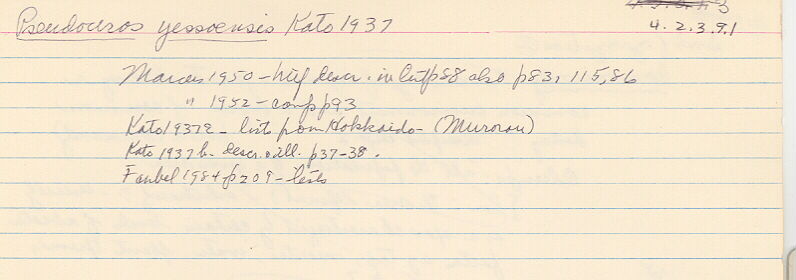 Pseudoceros yessoensis Kato 1937
4.2.3.9.1
Marcus 1950 - brief descr. in lit p88 also p83, 115, 86
" 1952 - comp p93
Kato 1937a - lists from Hokkaido - (Muroran)
Kato 1937b - descr. &ill. p37-38.
Faubel 1984 p209 - lists